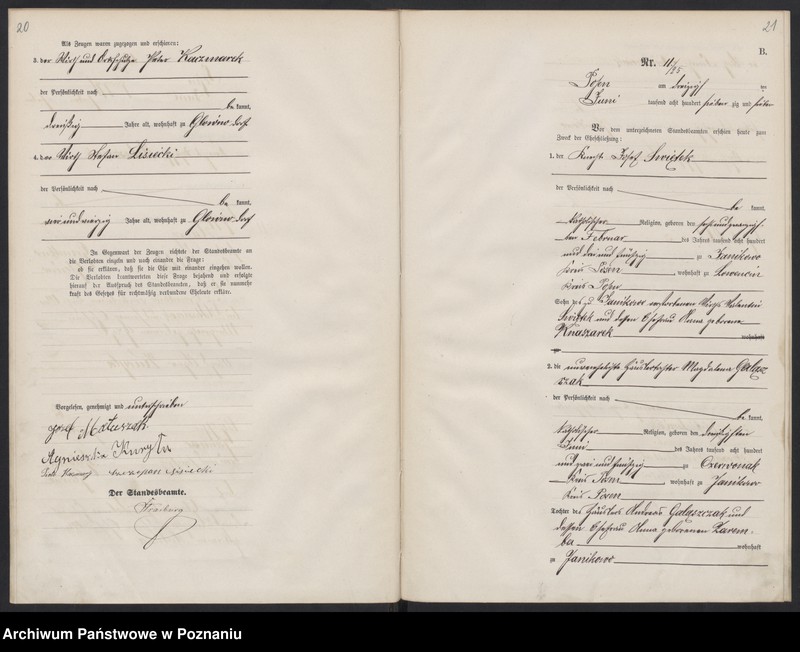 20
Als Zeugen waren zugezogen und erschienen:
3. der Wirth und Ortsschulze Peter Kaczmarek
der Persönlichkeit nach
be kannt,
dreißig Jahre alt, wohnhaft zu Glowno Dorf
4. der Wirth Stefan Lisiecki
der Persönlichkeit nach
be kannt,
vierundvierzig Jahre alt, wohnhaft zu Glowno Dorf
In Gegenwart der Zeugen richtete der Standesbeamte an
die Verlobten einzeln und nach einander die Frage:
ob sie erklären, daß sie die Ehe mit einander eingehen wollen.
Die Verlobten beantworteten diese Frage bejahend und erfolgte
hierauf der Ausspruch des Standesbeamten, daß er sie nunmehr
kraft des Gesetzes für rechtmäßig verbundene Eheleute erkläre.
Vorgelesen, genehmigt und unterschrieben
Józef Matuszak
Agnieszka
Lisiecki
Der Standesbeamte.
21
B.
Nr. 11
Posen am dreizigsten
Juni tausend acht hundert sieben zig und
Vor dem unterzeichneten Standesbeamten erschien heute zum
Zweck der Eheschließung:
1. der Knecht Josef Swiętek
der Persönlichkeit nach
be kannt,
katholischer Religion, geboren den
ten Februar des Jahres tausend acht hundert
und drei und fünfzig zu Janikowo
Kreis Posen, wohnhaft zu
Kreis Posen
Sohn des zu Janikowo verstorbenen Wirths Valentin
Swiętek und dessen Ehefrau Anna geborene
Knaszarek wohnhaft
zu
2. die unverehelichte Häuslertochter Magdalena Gałasz
czak
der Persönlichkeit nach
be kannt,
katholischer Religion, geboren den dreißigsten
Juni des Jahres tausend acht hundert
und zwei und fünfzig zu Czerwonak
Kreis Posen, wohnhaft zu Janikowo
Kreis Posen
Tochter des Häuslers Andreas Gałaszczak und
dessen Ehefrau Anna geborenen Zarem
ba wohnhaft
zu Janikowo
Archiwum Państwowe w Poznaniu